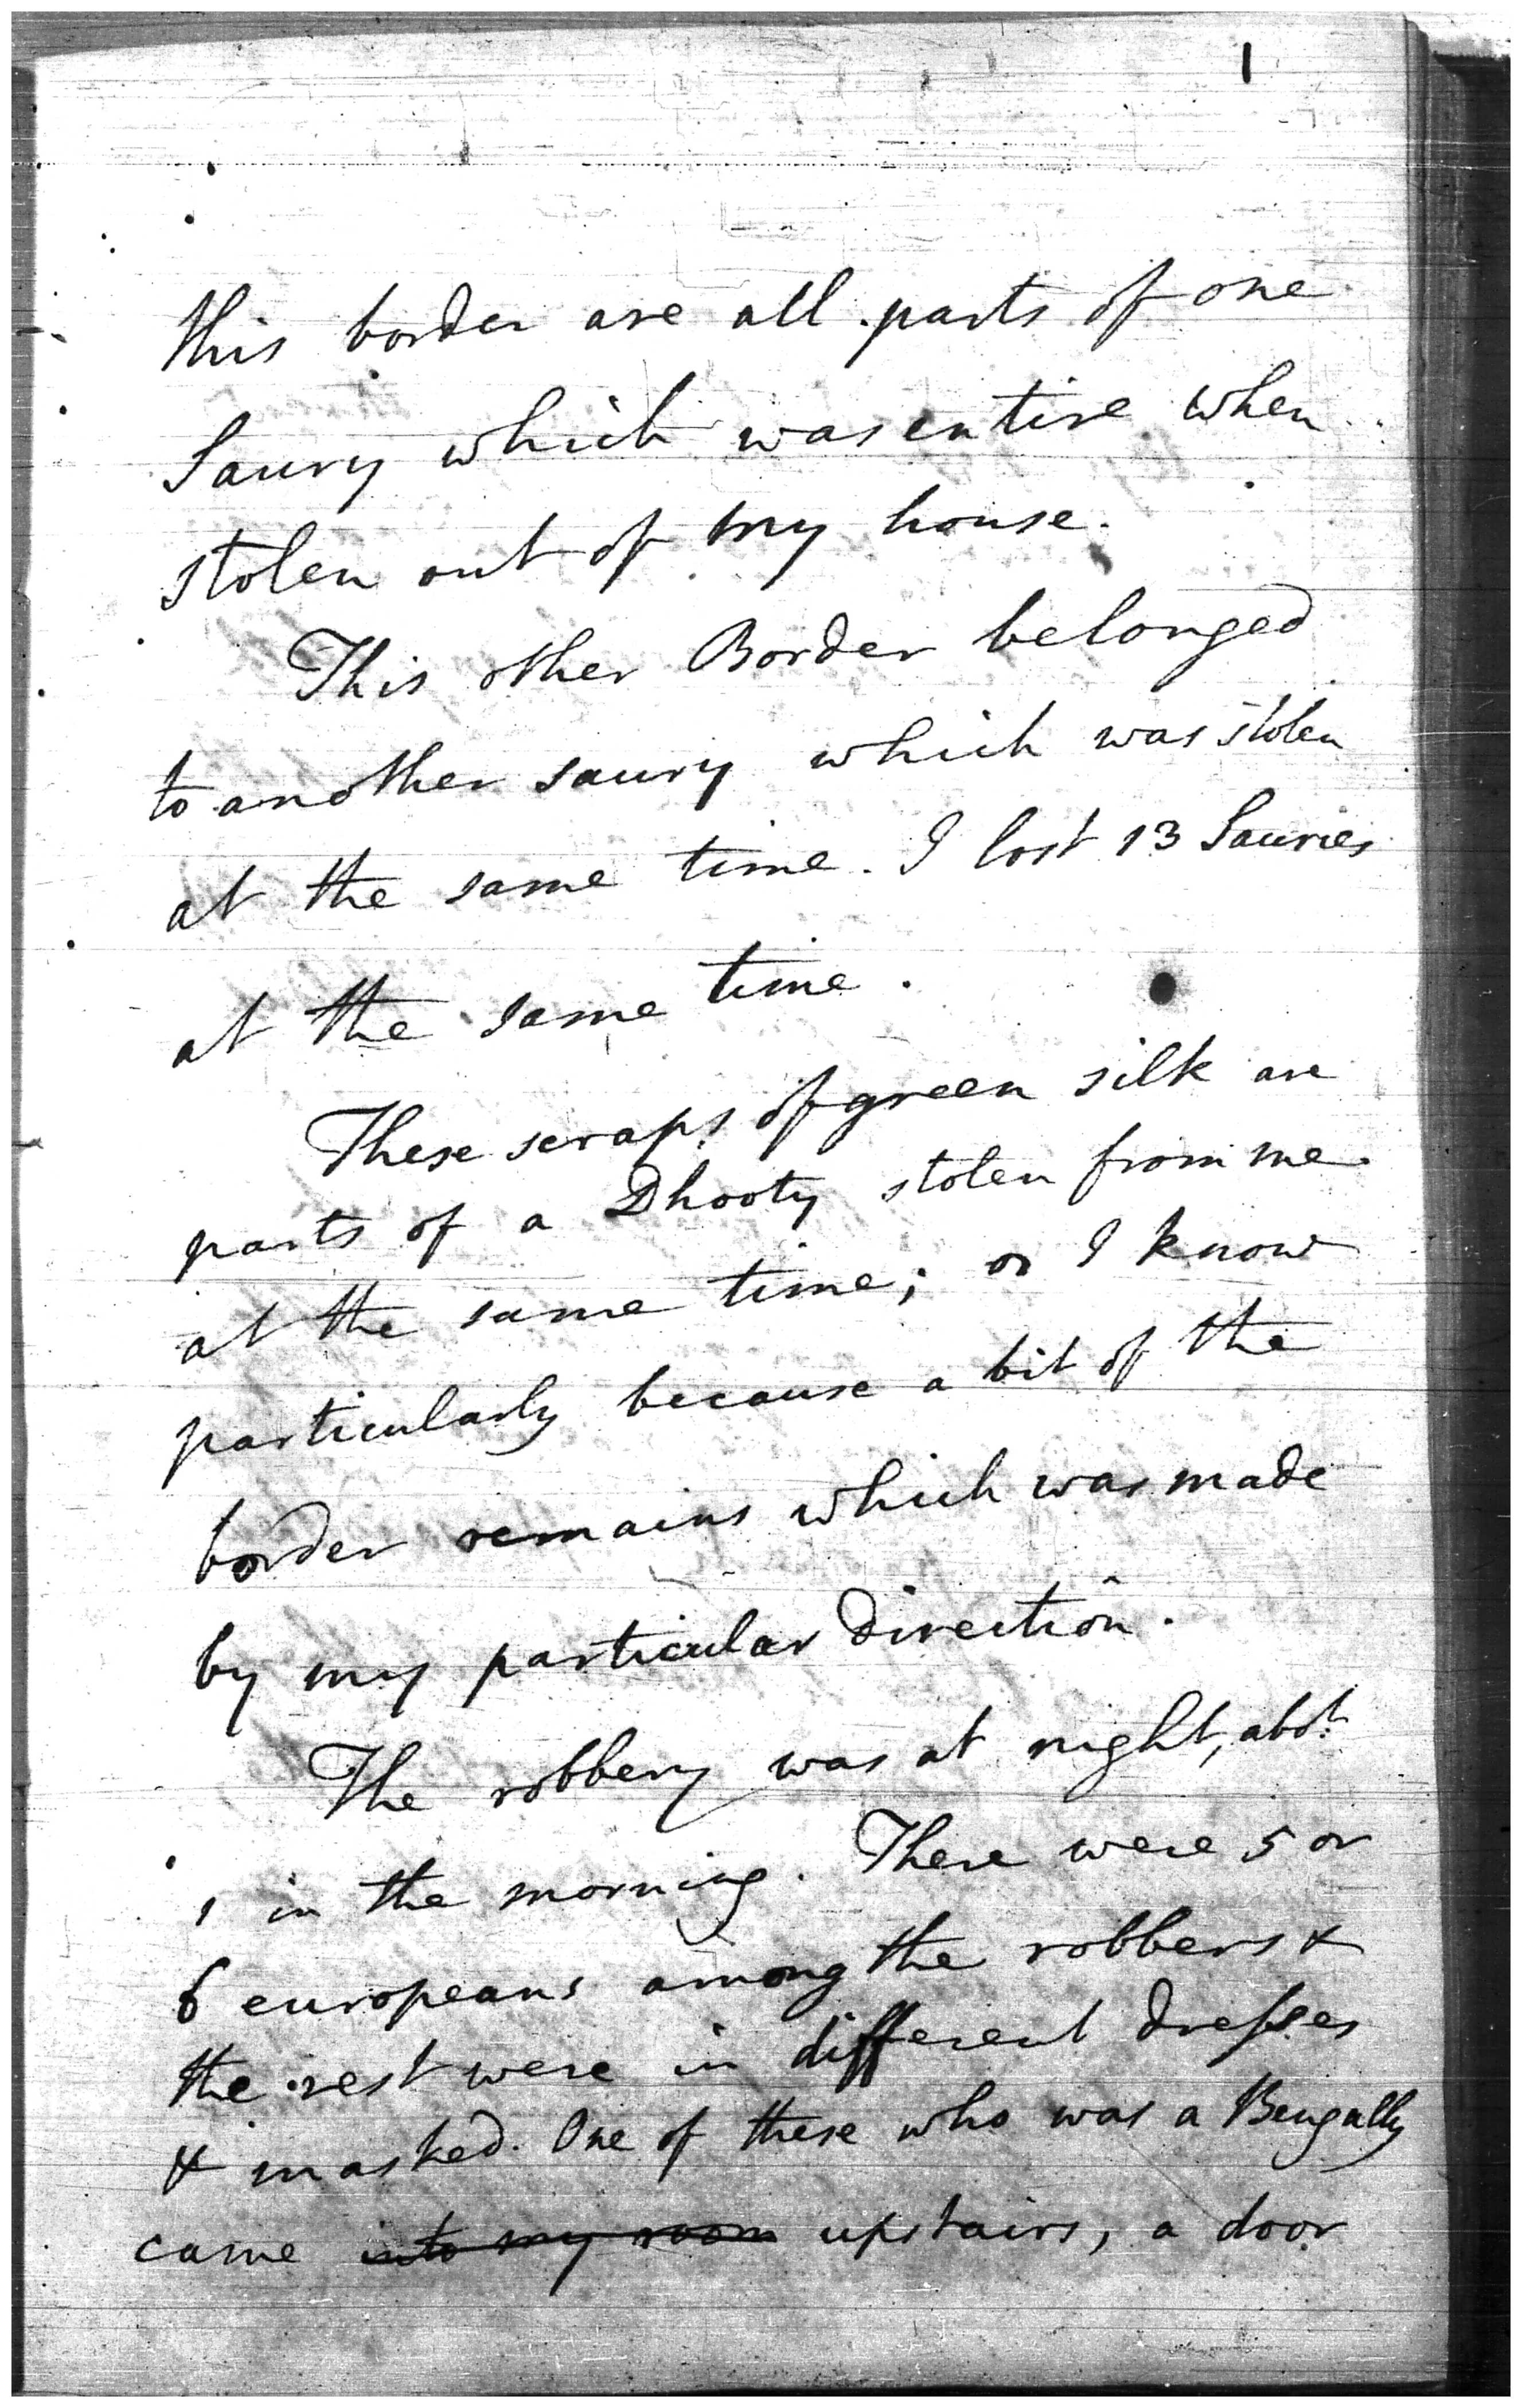 this border are all parts of one
Saury which was entire when
stolen out of my house.
This other Border belonged
to another saury which was stolen
at the same time. I lost 13 Sauries
at the same time.
These scraps of green silk are
parts of a Dhooty stolen from me
at the same time; or I know
particularly because a bit of the
border remains which was made
by my particular direction.
The robbery was at night, abot
1 in the morning. There were 5 or
6 europeans among the robbers &
the rest were in different dresses
& masked. One of these who was a Bengally
came into my room upstairs, a door